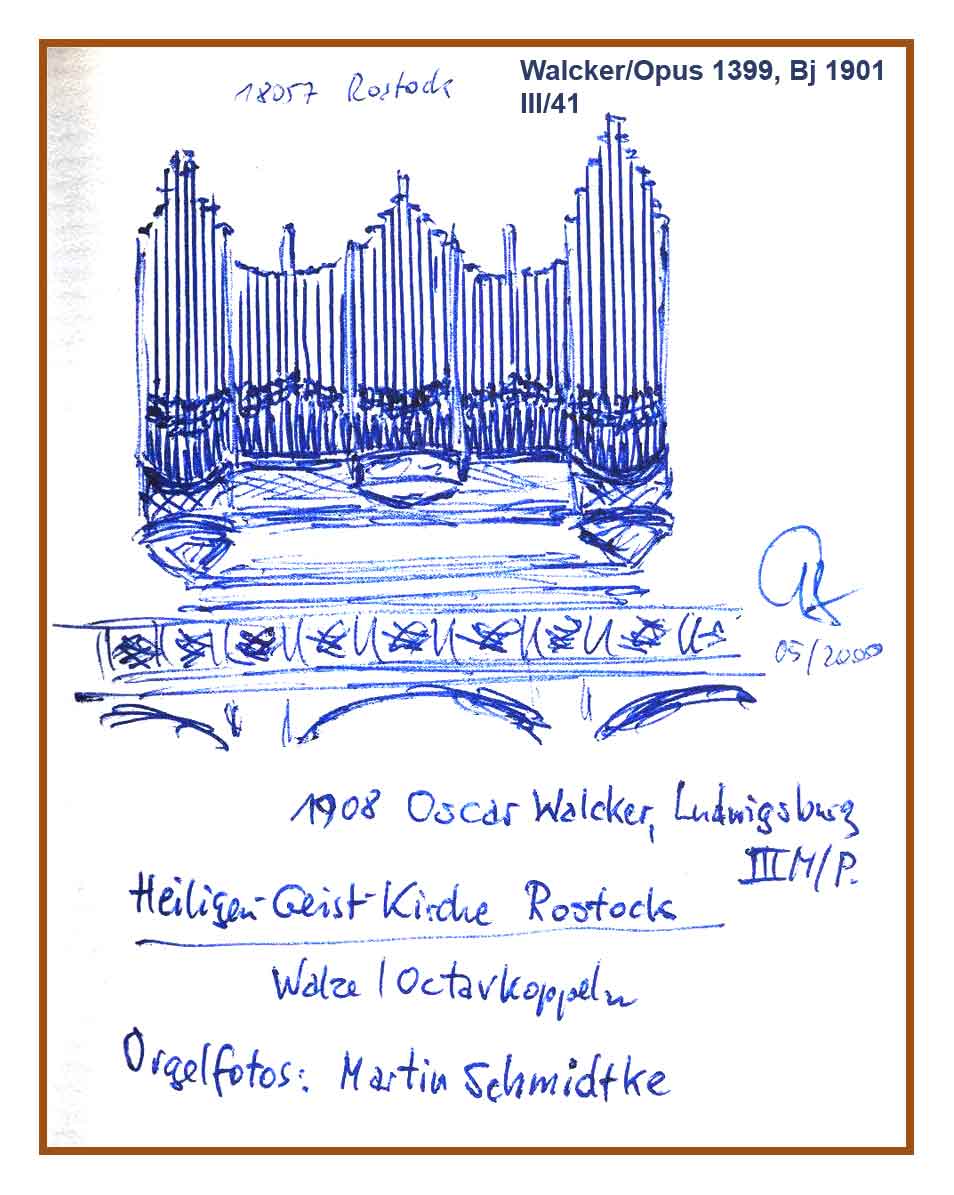 18057 Rostock
Walcker/Opus 1399, Bj 1901
III/41
05/2000
1908 Oscar Walcker, Ludwigsburg
III M/P.
Heiligen-Geist-Kirche Rostock
Walze / Octavkoppeln
Orgelfotos: Martin Schmidtke